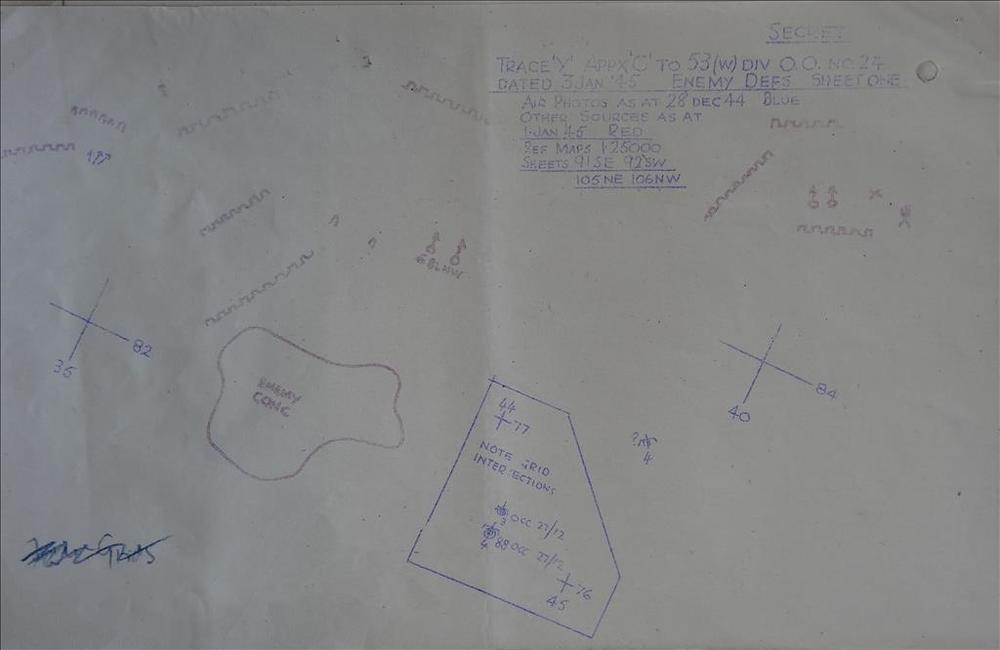 SECRET
TRACE 'Y' APPX 'C' TO 53 (W) DIV O.O. NO. 24
DATED 3 JAN '45 ENEMY DEFS SHEET ONE
AIR PHOTOS AS AT 28 DEC 44 BLUE
OTHER SOURCES AS AT
1 JAN 45 RED
REF MAPS 1:25000
SHEETS 91SE 92SW
105NE 106NW
82
35
ENEMY
CONC
84
40
44
77
NOTE GRID
INTERSECTIONS
?
4
3 OCC 27/12
4 88 OCC 27/12
76
45